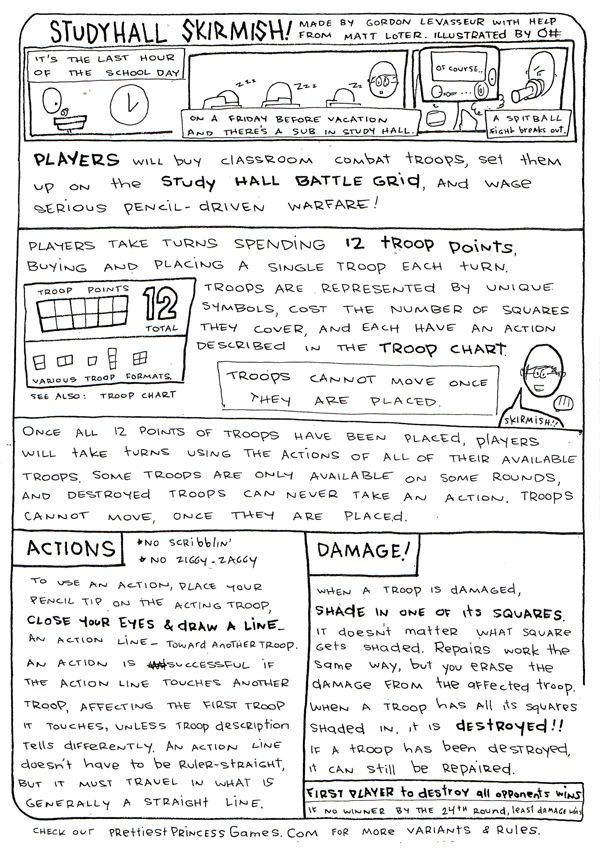 STUDYHALL SKIRMISH!
MADE BY GORDON LEVASSEUR WITH HELP
FROM MATT LOTER. ILLUSTRATED BY O#
IT'S THE LAST HOUR
OF THE SCHOOL DAY
ZZZ
ZZZ
ZZZ
ON A FRIDAY BEFORE VACATION
AND THERE'S A SUB IN STUDY HALL.
OF COURSE..
A SPITBALL
FIGHT BREAKS OUT.
PLAYERS WILL BUY CLASSROOM COMBAT TROOPS, SET THEM
UP ON THE STUDY HALL BATTLE GRID, AND WAGE
SERIOUS PENCIL-DRIVEN WARFARE!
PLAYERS TAKE TURNS SPENDING 12 TROOP POINTS,
BUYING AND PLACING A SINGLE TROOP EACH TURN.
TROOP POINTS
12
TOTAL
VARIOUS TROOP FORMATS.
SEE ALSO: TROOP CHART
TROOPS ARE REPRESENTED BY UNIQUE
SYMBOLS, COST THE NUMBER OF SQUARES
THEY COVER, AND EACH HAVE AN ACTION
DESCRIBED IN THE TROOP CHART.
TROOPS CANNOT MOVE ONCE
THEY ARE PLACED.
SKIRMISH!!
ONCE ALL 12 POINTS OF TROOPS HAVE BEEN PLACED, PLAYERS
WILL TAKE TURNS USING THE ACTIONS OF ALL OF THEIR AVAILABLE
TROOPS. SOME TROOPS ARE ONLY AVAILABLE ON SOME ROUNDS,
AND DESTROYED TROOPS CAN NEVER TAKE AN ACTION. TROOPS
CANNOT MOVE, ONCE THEY ARE PLACED.
ACTIONS
*NO SCRIBBLIN'
*NO ZIGGY-ZAGGY
TO USE AN ACTION, PLACE YOUR
PENCIL TIP ON THE ACTING TROOP,
CLOSE YOUR EYES & DRAW A LINE-
AN ACTION LINE- TOWARD ANOTHER TROOP.
AN ACTION IS SUCCESSFUL IF
THE ACTION LINE TOUCHES ANOTHER
TROOP, AFFECTING THE FIRST TROOP
IT TOUCHES, UNLESS TROOP DESCRIPTION
TELLS DIFFERENTLY. AN ACTION LINE
DOESN'T HAVE TO BE RULER-STRAIGHT,
BUT IT MUST TRAVEL IN WHAT IS
GENERALLY A STRAIGHT LINE.
DAMAGE!
WHEN A TROOP IS DAMAGED,
SHADE IN ONE OF ITS SQUARES.
IT DOESN'T MATTER WHAT SQUARE
GETS SHADED. REPAIRS WORK THE
SAME WAY, BUT YOU ERASE THE
DAMAGE FROM THE AFFECTED TROOP.
WHEN A TROOP HAS ALL ITS SQUARES
SHADED IN, IT IS DESTROYED!!
IF A TROOP HAS BEEN DESTROYED,
IT CAN STILL BE REPAIRED.
FIRST PLAYER TO DESTROY ALL OPPONENTS WINS
IF NO WINNER BY THE 24TH ROUND, LEAST DAMAGE WINS
CHECK OUT PRETTIESTPRINCESSGAMES.COM FOR MORE VARIANTS & RULES.